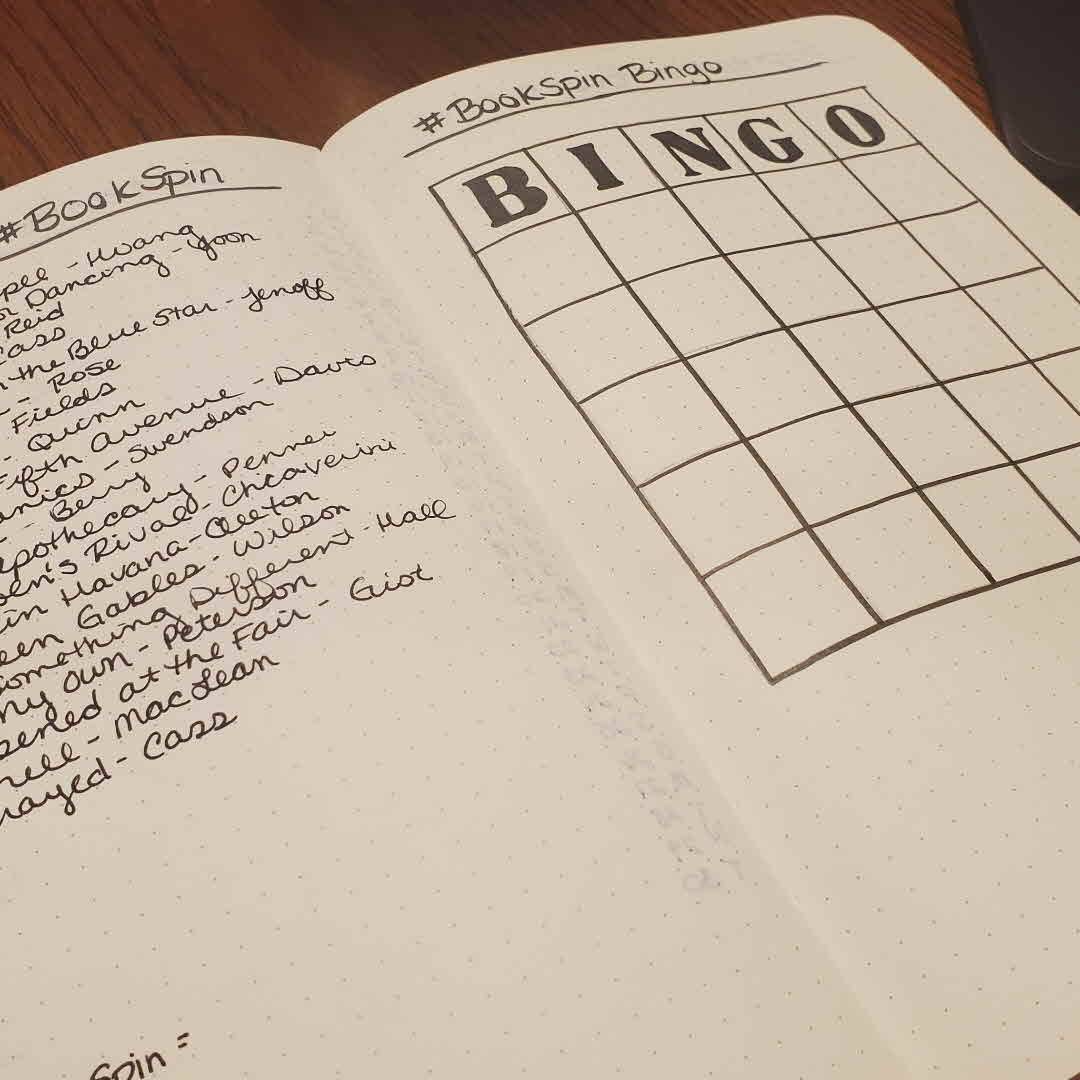 #BookSpin
- Hwang
Dancing - Yoon
Reid
Cass
the Blue Star - Jenoff
- Rose
Fields
- Quinn
Fifth Avenue - Davis
- Swendson
- Berry
Apothecary - Penner
Rival - Chiaverini
in Havana - Cleeton
Gables - Wilson
Something Different - Hall
my own - Peterson
at the Fair - Gist
- MacLean
- Cass
Spin =
#BookSpin Bingo
BINGO